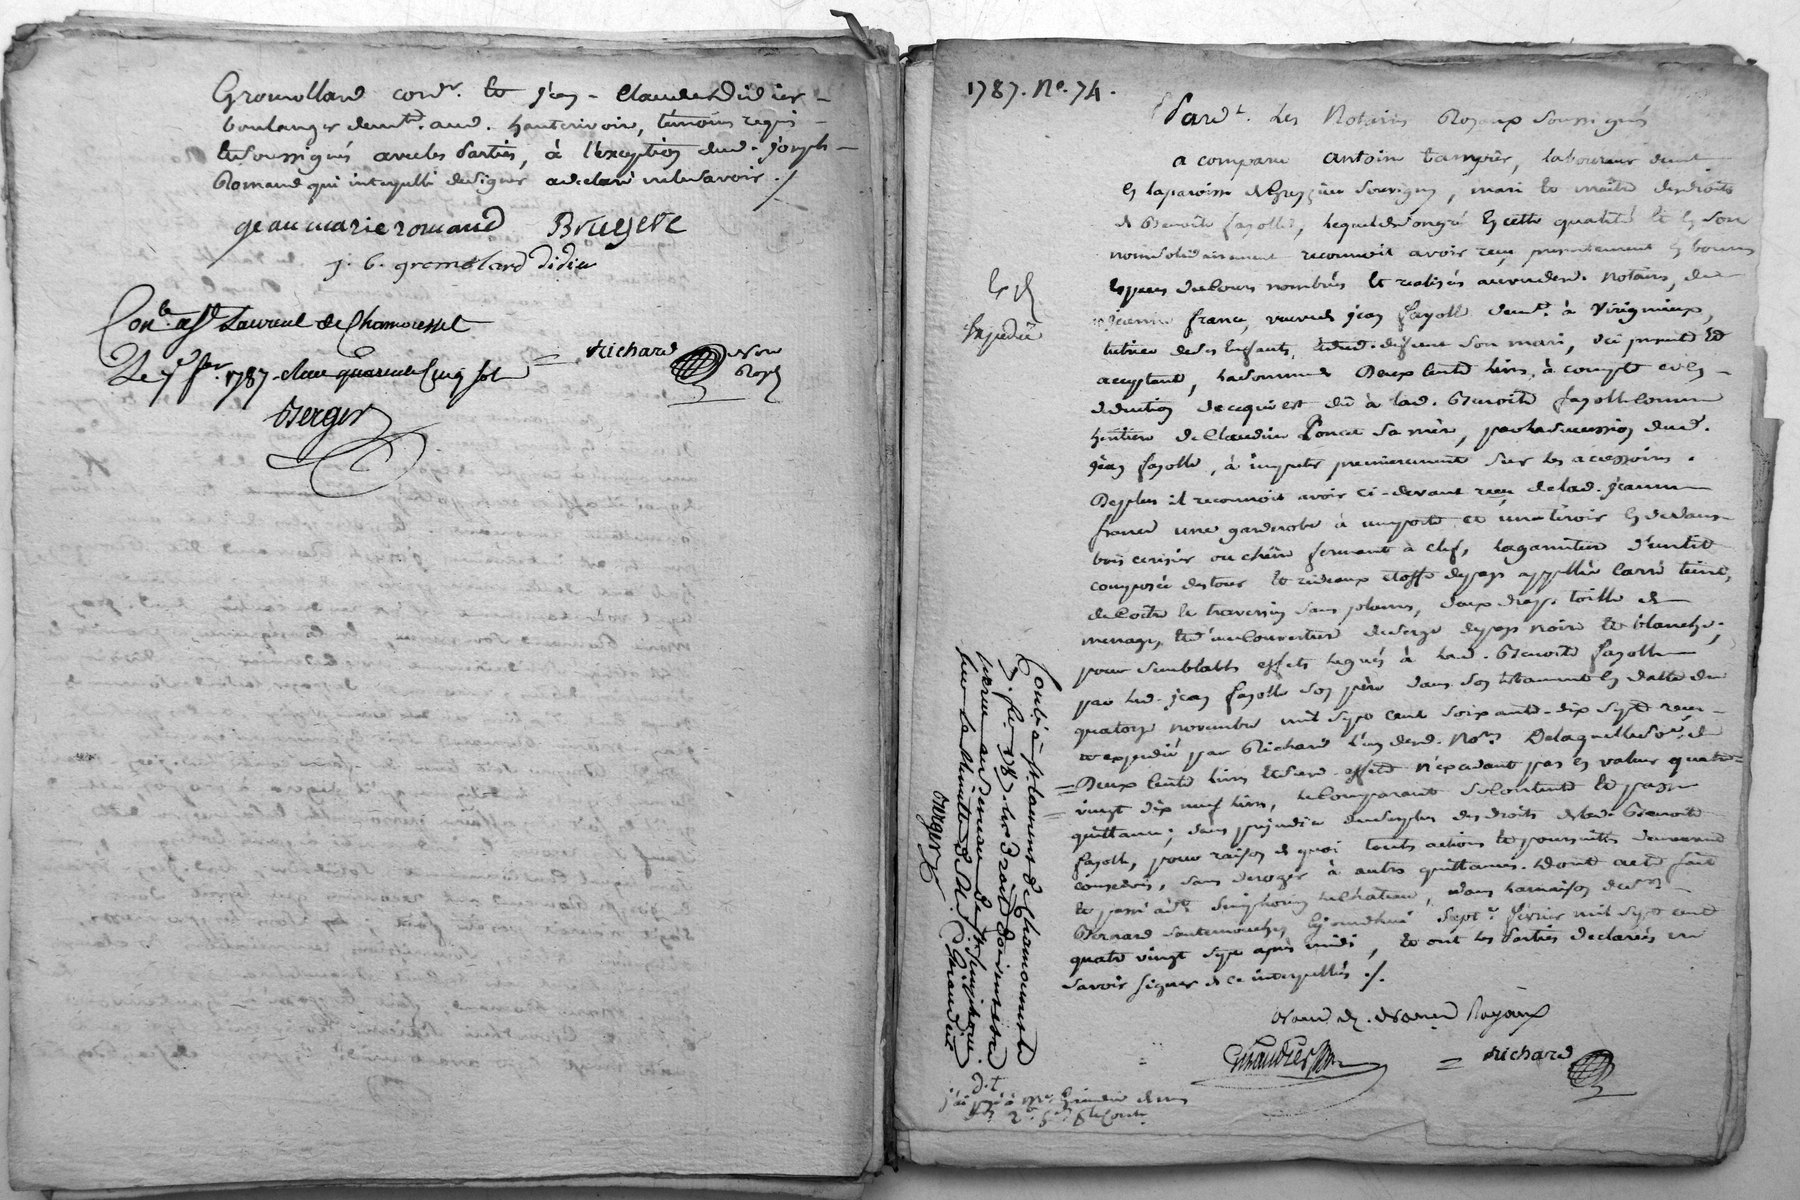 Gromollard cordr. et jean - Claude Didier -
boulanger demt. aud. hauterivoir, temoins requis -
et soussignés avec les parties, à l'exception dud. joseph -
Romand qui interpellé de signer a declaré ne le savoir ./
jean marie romand Bruyere
j. b. gromolard didier
Conlé. à St. Laurent de Chamousset
Le 7e fer. 1787. reçu quarante cinq sols
= Richard
Nore
Royal
Berger
1787. No. 74.
Pardt. Les Notaires Royaux soussignés
a comparu antoine laboureur demt
en la paroisse de mari et maître des droits
de Benoîte fayolle, lequel de son gré en cette qualité et en son
nom solidairement reconnoit avoir reçu presentement en bonnes
especes de cours nombrés et realisés au vu desd. notaires, de
jeanne france, veuve de jean fayolle demt. à Virigneux,
tutrice de ses enfants, et dud. defunt son mari, ici presente et
acceptant, la somme de Deux cents livres, à compte et en -
deduction de ce qui est dû à lad. Benoîte fayolle comme
heritiere de Claudine Poncet sa mère, par la succession dud.
jean fayolle, à imputer premierement sur les accessoires.
De plus il reconnoit avoir ci-devant reçu de lad. jeanne
france une garderobe à une porte et un tiroir en dedans
bois cerisier ou chêne fermant à clef, la garniture d'un lit
composée des tour et rideaux étoffe de pays appellée carré teint,
de coitre et traversin sans plumes, deux draps toille de
menage, et d'une couverture de serge de pays noire et blanche;
pour semblables effets legués à lad. Benoîte fayolle
par led. jean fayolle son père dans son testament en datte du
quatorze novembre mil sept cent soixante-dix sept reçu
et expedié par Richard l'un desd. Nores. De laquelle some. de
= Deux cents livres et desd. effets n'excedant pas en valeur quatre=
= vingt dix neuf livres, le comparant se contente et passe
quittance; sans prejudice du surplus des droits de lad. Benoîte
fayolle, pour raison de quoi toutes actions et poursuites demeurent
conservées, sans deroger à autres quittances. Dont acte fait
et passé à St. Simphorien le Chateau, dans la maison de sr.
Bernard ce jourdhui sept. février mil sept cent
quatre vingt sept après midi, et ont les parties declarées ne
savoir signer de ce interpellés ./.
Royaux
= Richard
Expedié
Conlé. à St. Laurent de Chamousset le
7. fer. 1787. les droits doivent être
perçus au bureau de St. Simphorien
sur la minute de Me. Giraudier
Berger